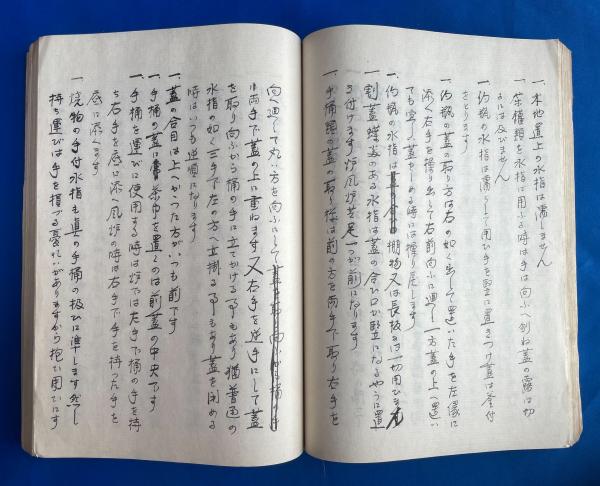 一、木地置上の水指は濡しません
一、茶桶類を水指に用ふる時は手は向ふへ刎ね蓋の露は切
るには及びません
一、釣瓶の水指は濡らして用ひ手を竪に置きつけ蓋は釜付
きをとります
一、釣瓶の蓋の取り方は右の如く出して置いた手を左縁に
添へ右手を操り出して右前向ふに廻し一方蓋の上へ置い
ても宜し蓋をしめる時には操り戻します
一、釣瓶の水指は棚物又は長板には一切用ひません
一、割蓋蝶番のある水指は蓋の合ひ口が竪になるやうに置
き付けます炉風炉共足一つが前になります
一、手桶類の蓋の取り様は前方を両手で取り右手を
向へ廻して丸い方を向ふにして
は両手で蓋の上に重ねます又右手を逆手にして蓋
を取り向ふから桶の手に立てかける事もあり猶普通の
水指の如く三手で左の方へ立掛る事もあり蓋を閉める
時はいつも逆順になります
一、蓋の合目は上へかかった方がいつも前です
一、手桶の蓋に棗茶巾を置くのは前蓋の中央です
一、手桶を運びに使用する時は炉では左手で桶の手を持
ち右手を底に添へ風炉の時は右手で手を持った手を
底に添へます
一、焼物の手付水指も真の手桶の扱ひに準じます然し
持ち運びは手を損づる憂ひがありますから抱い用ひにす